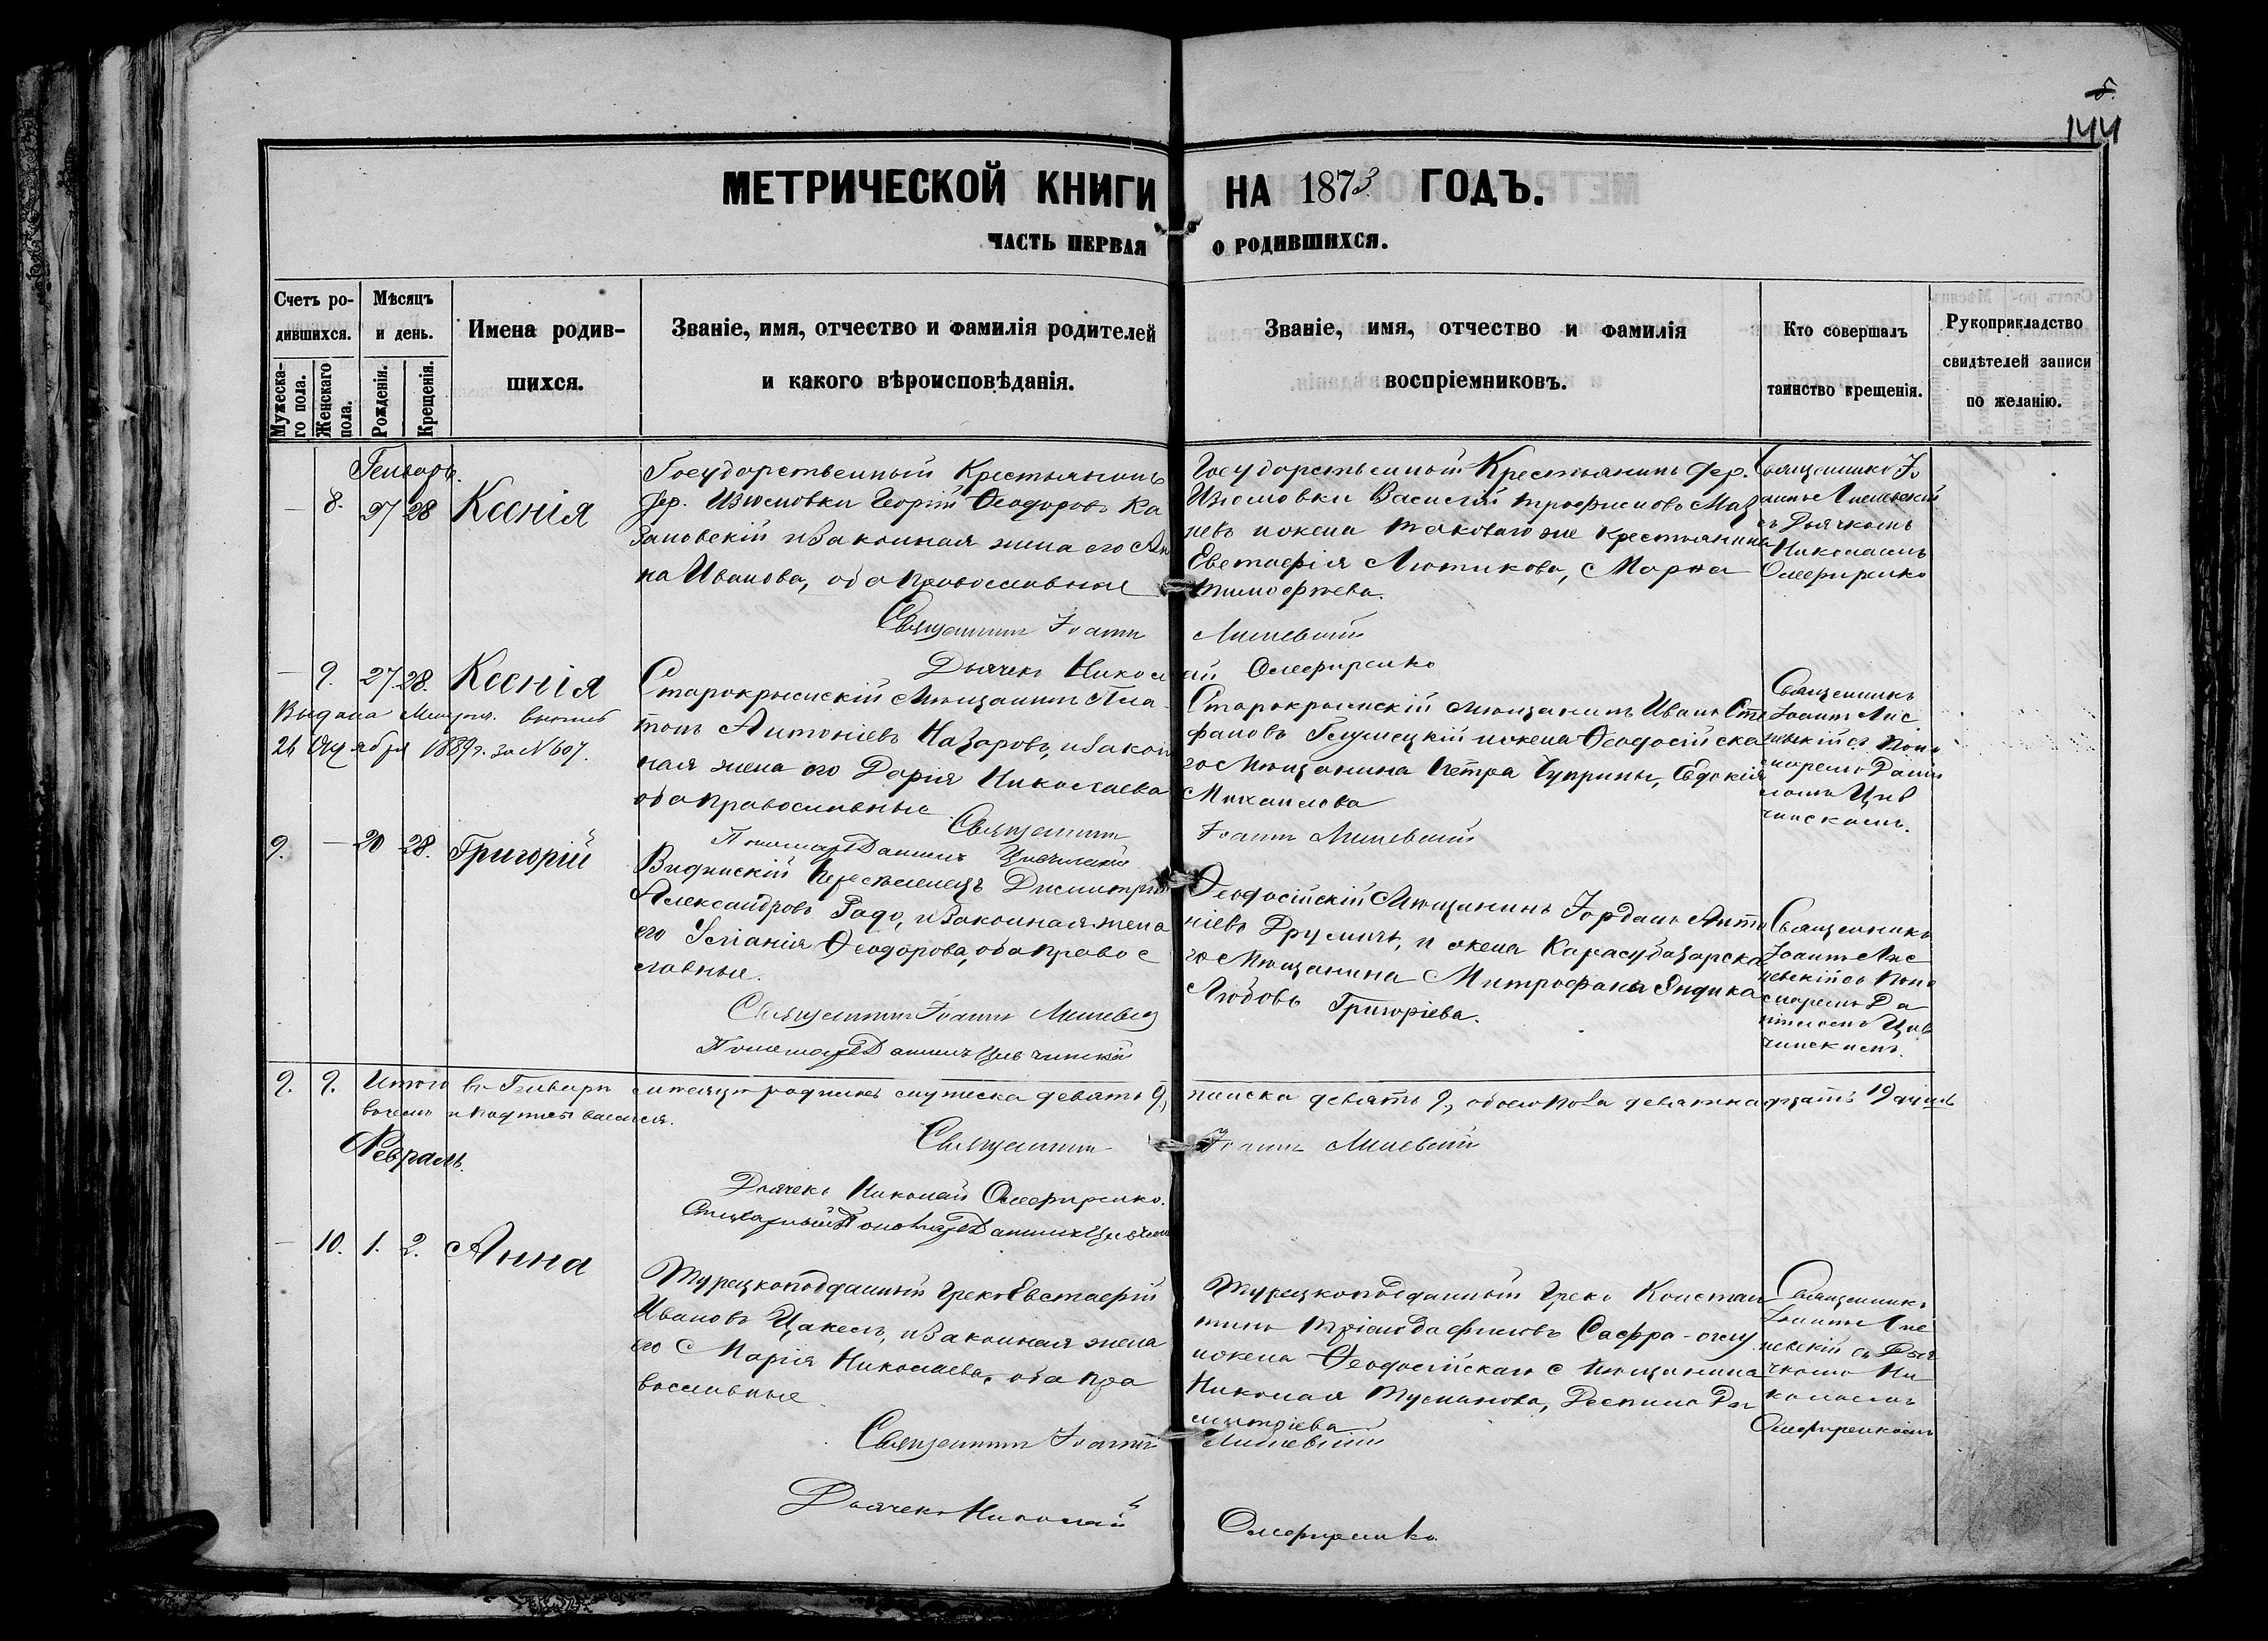 5.
144
МЕТРИЧЕСКОЙ КНИГИ НА 1873 ГОДЪ.
ЧАСТЬ ПЕРВАЯ О РОДИВШИХСЯ.
Счетъ ро-
дившихся.
Мужеска-
го пола.
Женскаго
пола.
Мѣсяцъ
и день.
Рожденія.
Крещенія.
Имена родив-
шихся.
Званіе, имя, отчество и фамилія родителей
и какого вѣроисповѣданія.
Званіе, имя, отчество и фамилія
воспріемниковъ.
Кто совершалъ
таинство крещенія.
Рукоприкладство
свидѣтелей записи
по желанію.
Генварь.
— 8. 27 28 Ксенія
Государственный Крестьянинъ
дер. Изюмовки Георгій Ѳеодоровъ Ка
зановскій и законная жена его Ан
на Иванова, оба православные
Государственный Крестьянинъ дер.
Изюмовки Василій Трофимовъ Маз
невъ и жена таковаго же крестьянина
Евстафія Лютикова, Марѳа
Тимофѣева.
Священникъ Іо
аннъ
съ Дьячкомъ
Николаемъ
Священникъ Іоаннъ
Дьячекъ Николай
— 9. 27. 28. Ксенія
Выдана Метрич. выпись
26 Октября 1889 г. за № 607.
Старокрымскій Мѣщанинъ Пла
тонъ Антоніевъ Назаровъ, и закон
ная жена его Дарія Николаева
оба православные
Старокрымскій мѣщанинъ Иванъ Сте
фановъ и жена Ѳеодосійска
го Мѣщанина Петра Чуприны, Евдокія
Михаилова
Священникъ
Іоаннъ Лис
невскій съ Поно
маремъ Дани
ломъ Цив
чинскимъ.
Священникъ Іоаннъ
Пономарь Даніилъ
9. — 20 28. Григорій
Видинскій Переселенецъ Димитрій
Александровъ Радо, и законная жена
его Ѳеодорова, оба правос
лавные.
Ѳеодосійскій Мѣщанинъ Іорданъ Анто
ніевъ и жена Карасубазарска
го Мѣщанина Митрофана Яндика
Любовь Григоріева.
Священникъ
Іоаннъ Лис
невскій съ Поно
маремъ Да
ніиломъ Цив
чинскимъ.
Священникъ Іоаннъ
Пономарь Даніилъ
9. 9. Итого въ Генварѣ мѣсяцѣ родилось мужеска девять 9, женска девять 9, обоего пола
Февраль.
Священникъ Іоаннъ
Дьячекъ Николай
Стихарный Пономарь Даніилъ
— 10. 1. 2. Анна
Турецкоподданный Грекъ Евстафій
Ивановъ Цакелъ, и законная жена
его Марія Николаева, оба пра
вославные
Турецкоподданный Грекъ Констан
тинъ Сафра-оглу
и жена Ѳеодосійскаго Мѣщанина
Николая Туманова, Деспина Ди
митріева
Священникъ
Іоаннъ Лис
невскій съ Дья
чкомъ Ни
колаемъ
Священникъ Іоаннъ
Дьячекъ Николай